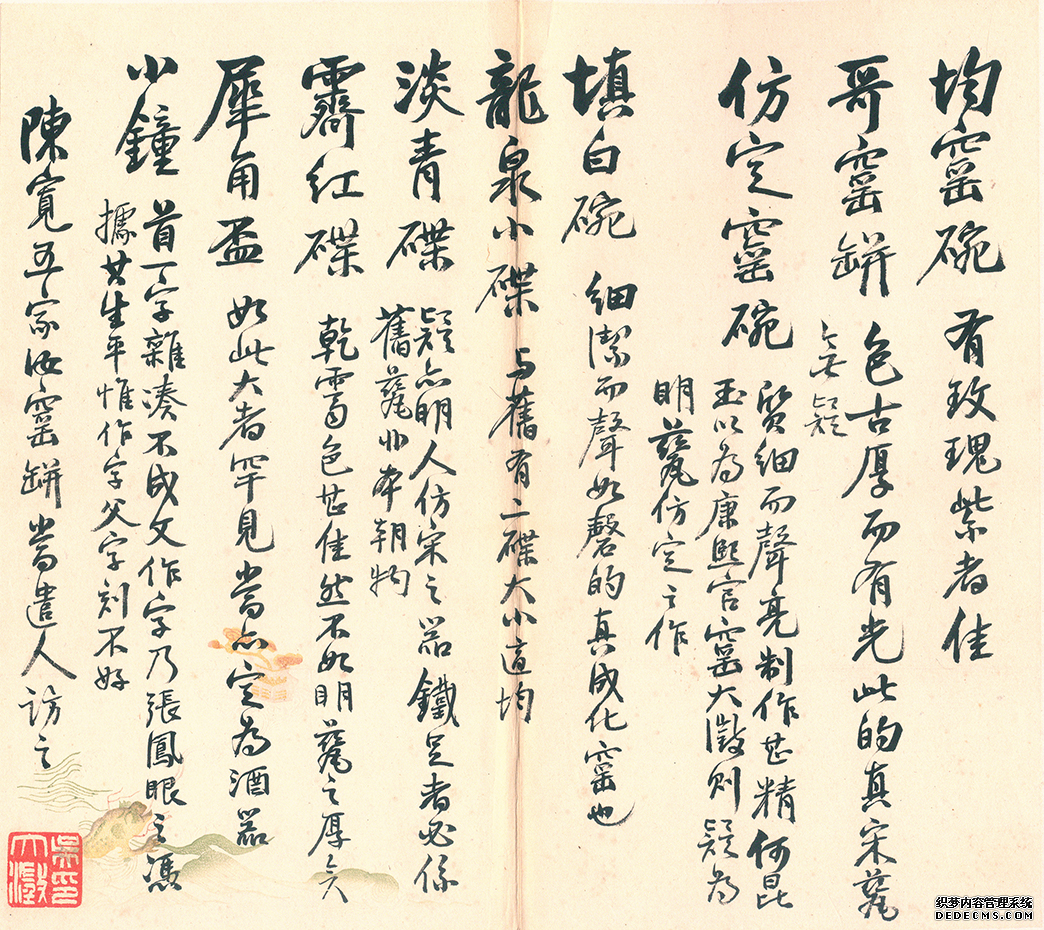 均窯碗 有玫瑰紫者佳
哥窯缾 色古厚而有光此的真宋甆
無疑
仿定窯碗 質細而聲亮制作甚精何昆
玉以為康熙官窯大澂則疑為
明甆仿定之作
填白碗 細潔而聲如磬的真成化窯也
龍泉小碟 与舊有二碟大小適均
淡青碟 疑亦明人仿宋之器鐵足者必係
舊甆非本朝物
霽紅碟 乾色甚佳然不如明甆之厚矣
犀角盃 如此大者罕見當亦定為酒器
小鐘 首一字雜湊不成文作字乃張鳳眼之憑
據其生平惟作字父字刻不好
陳寬五家汝窯缾當遣人訪之
吳印
大澂
织梦内容管理系统
DEDECMS.COM